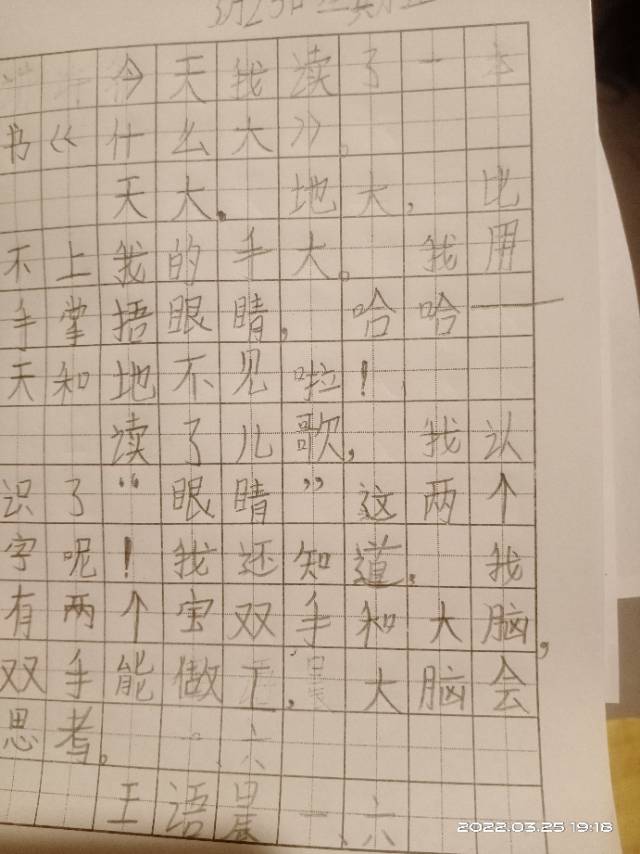 今天我读了一本
书《什么大》。
天大。地大，比
不上我的手大。我用
手掌捂眼睛，哈哈——
天和地不见啦！
读了儿歌，我认
识了“眼睛”这两个
字呢！我还知道，我
有两个宝双手和大脑，
双手能做工，大脑会
思考。
王语晨一、六
2022.03.25 19:18